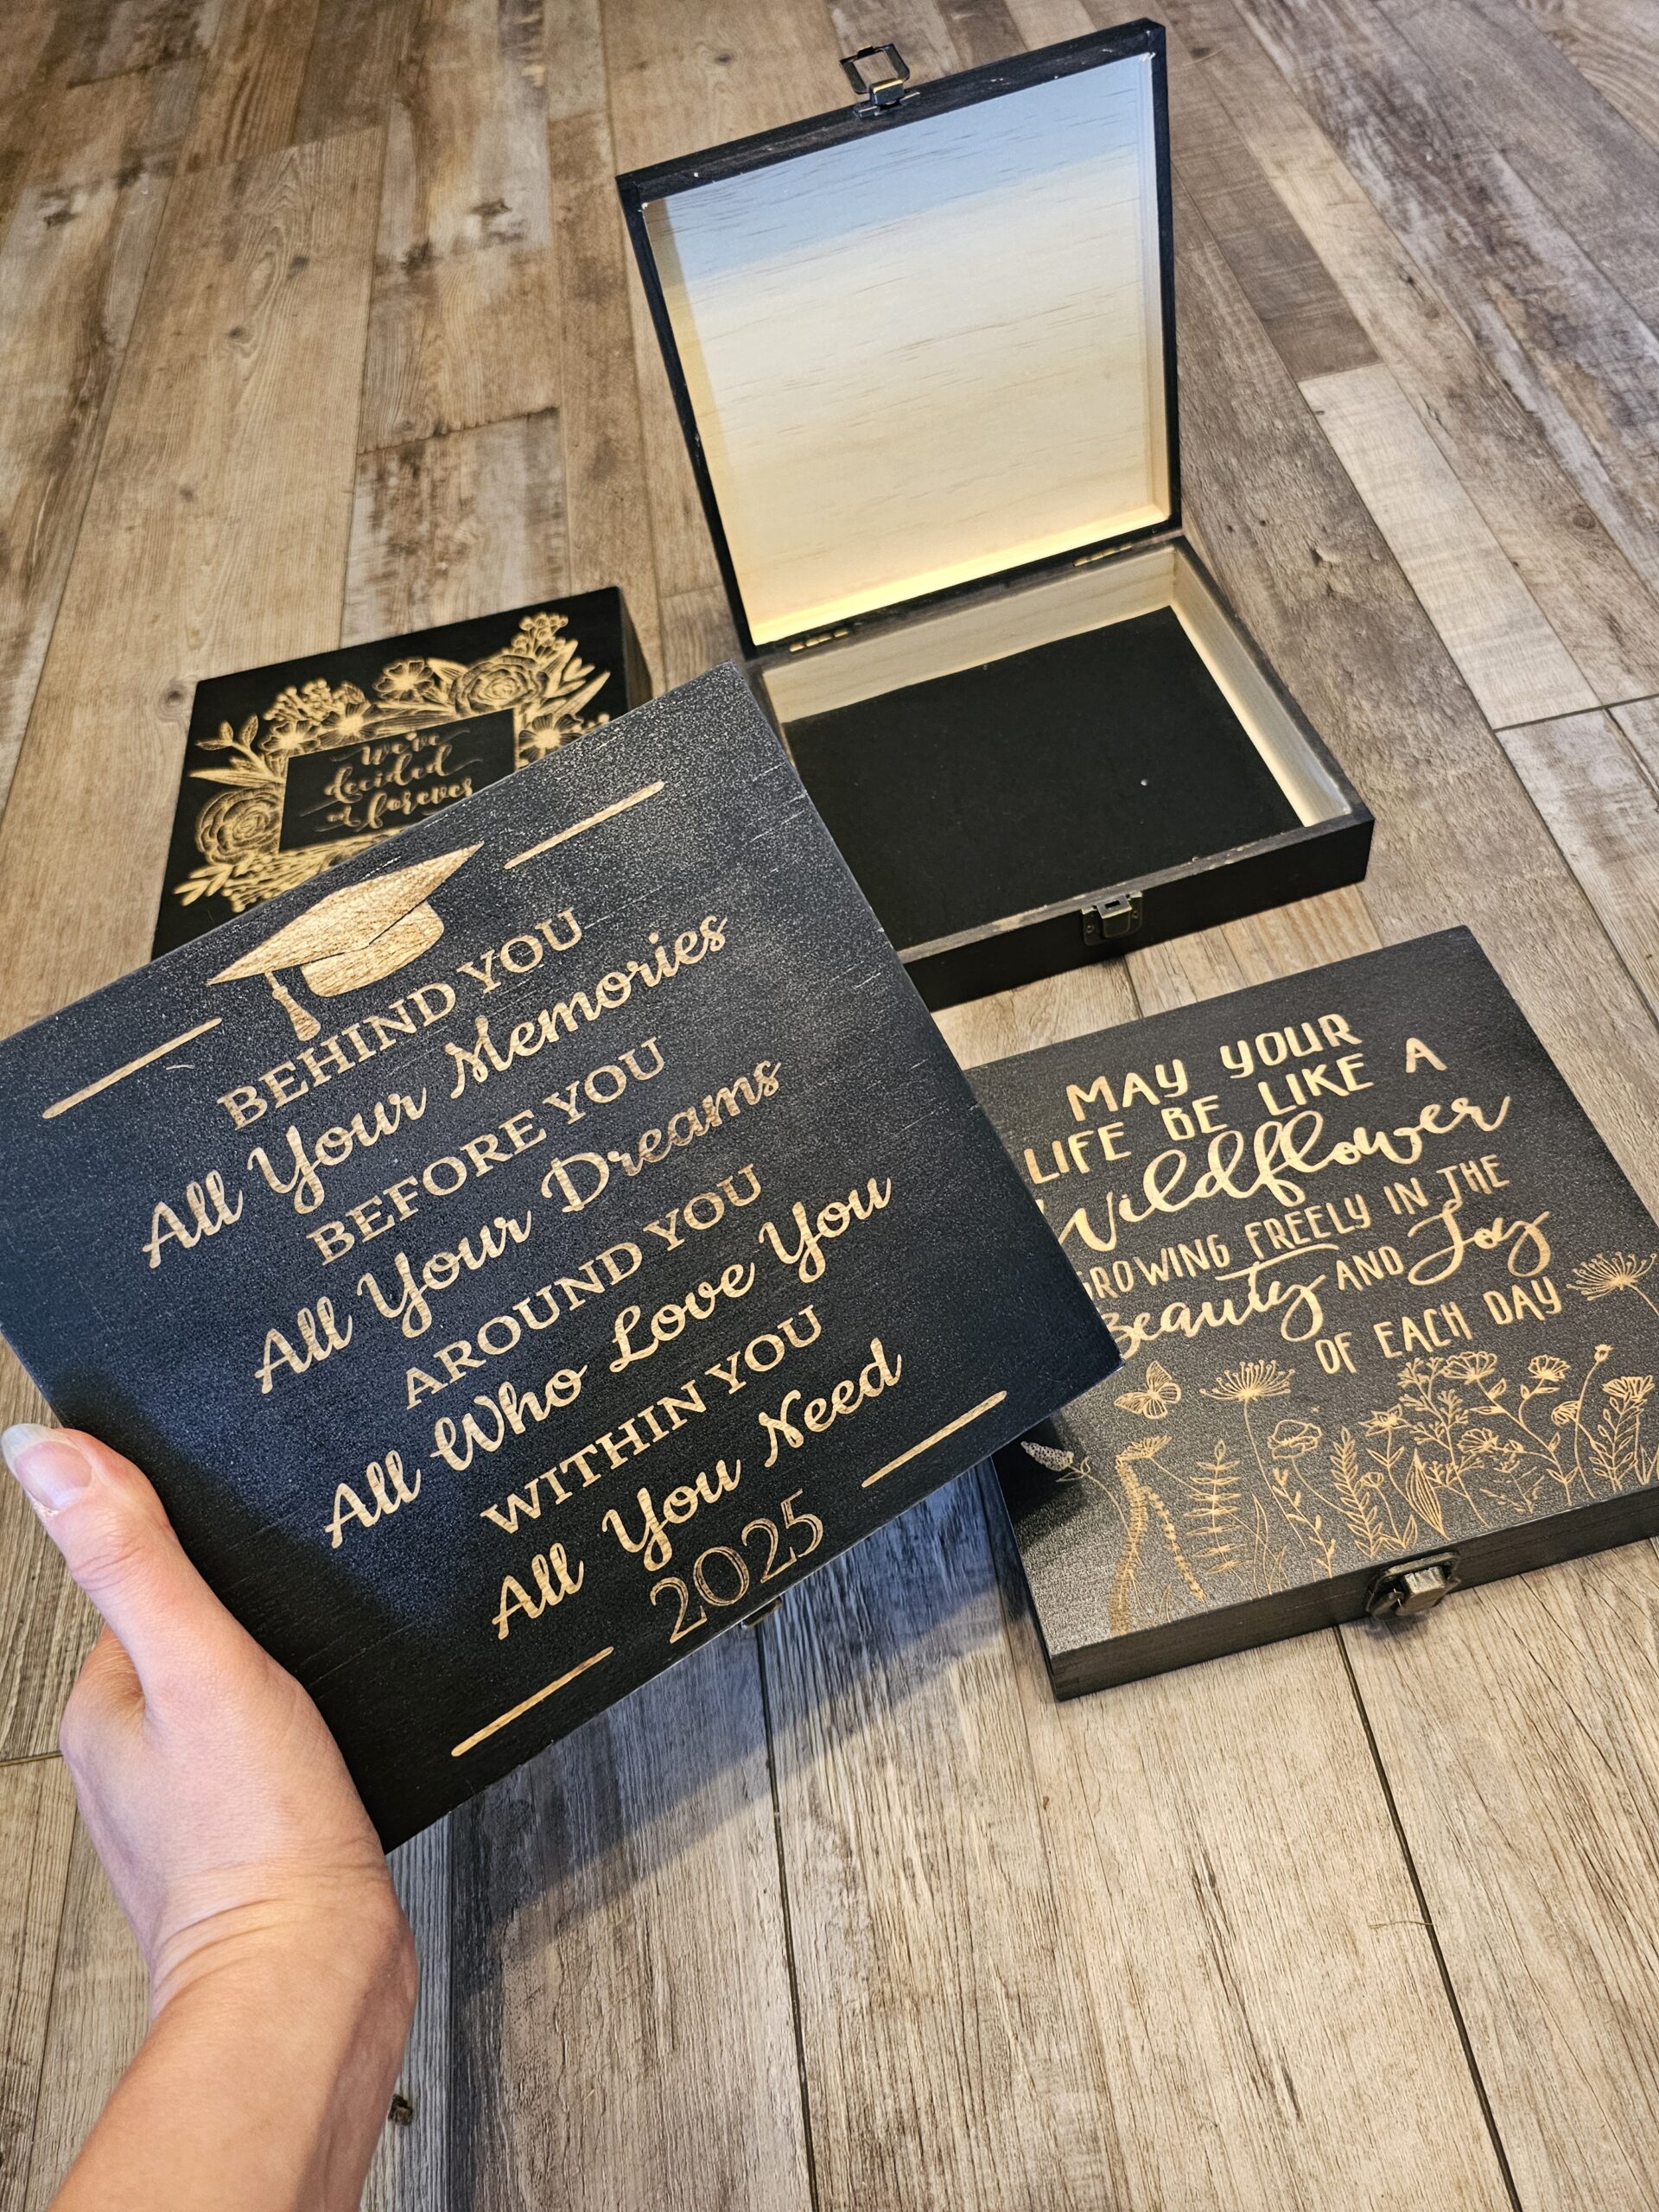 We've
decided
on forever
BEHIND YOU
All Your Memories
BEFORE YOU
All Your Dreams
AROUND YOU
All Who Love You
WITHIN YOU
All You Need
2025
MAY YOUR
LIFE BE LIKE A
Wildflower
GROWING FREELY IN THE
Beauty AND Joy
OF EACH DAY